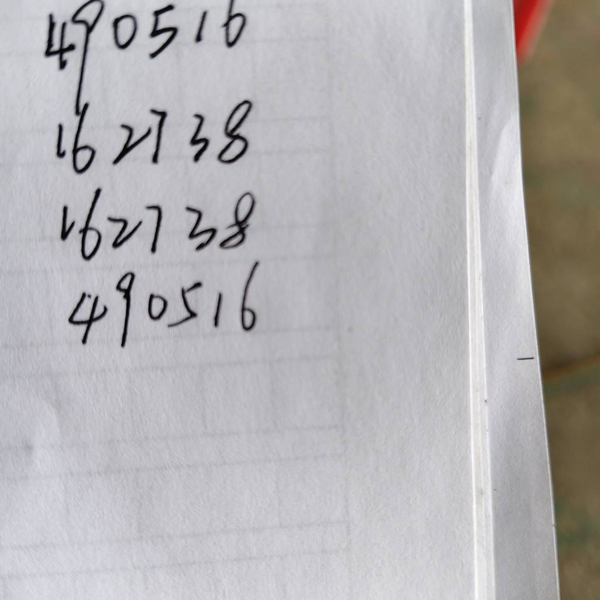 490516
162738
162738
490516